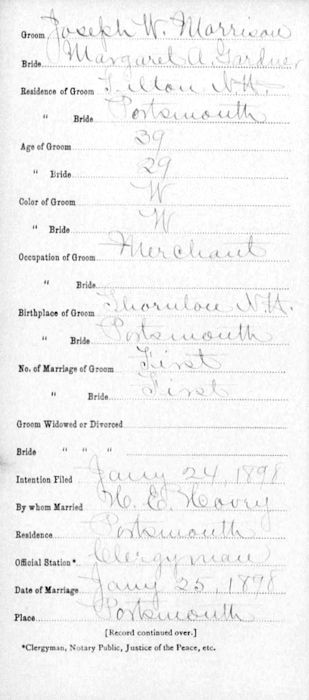 Groom Joseph W. Morrison
Bride Margaret A. Gardner
Residence of Groom Tilton N.H.
" Bride Portsmouth
Age of Groom 39
" Bride 29
Color of Groom W
" Bride W
Occupation of Groom Merchant
" Bride
Birthplace of Groom Thornton N.H.
" Bride Portsmouth
No. of Marriage of Groom First
" Bride First
Groom Widowed or Divorced
Bride " " "
Intention Filed Jany 24, 1898
By whom Married H. E. Hovey
Residence Portsmouth
Official Station* Clergyman
Date of Marriage Jany 25, 1898
Place Portsmouth
[Record continued over.]
*Clergyman, Notary Public, Justice of the Peace, etc.